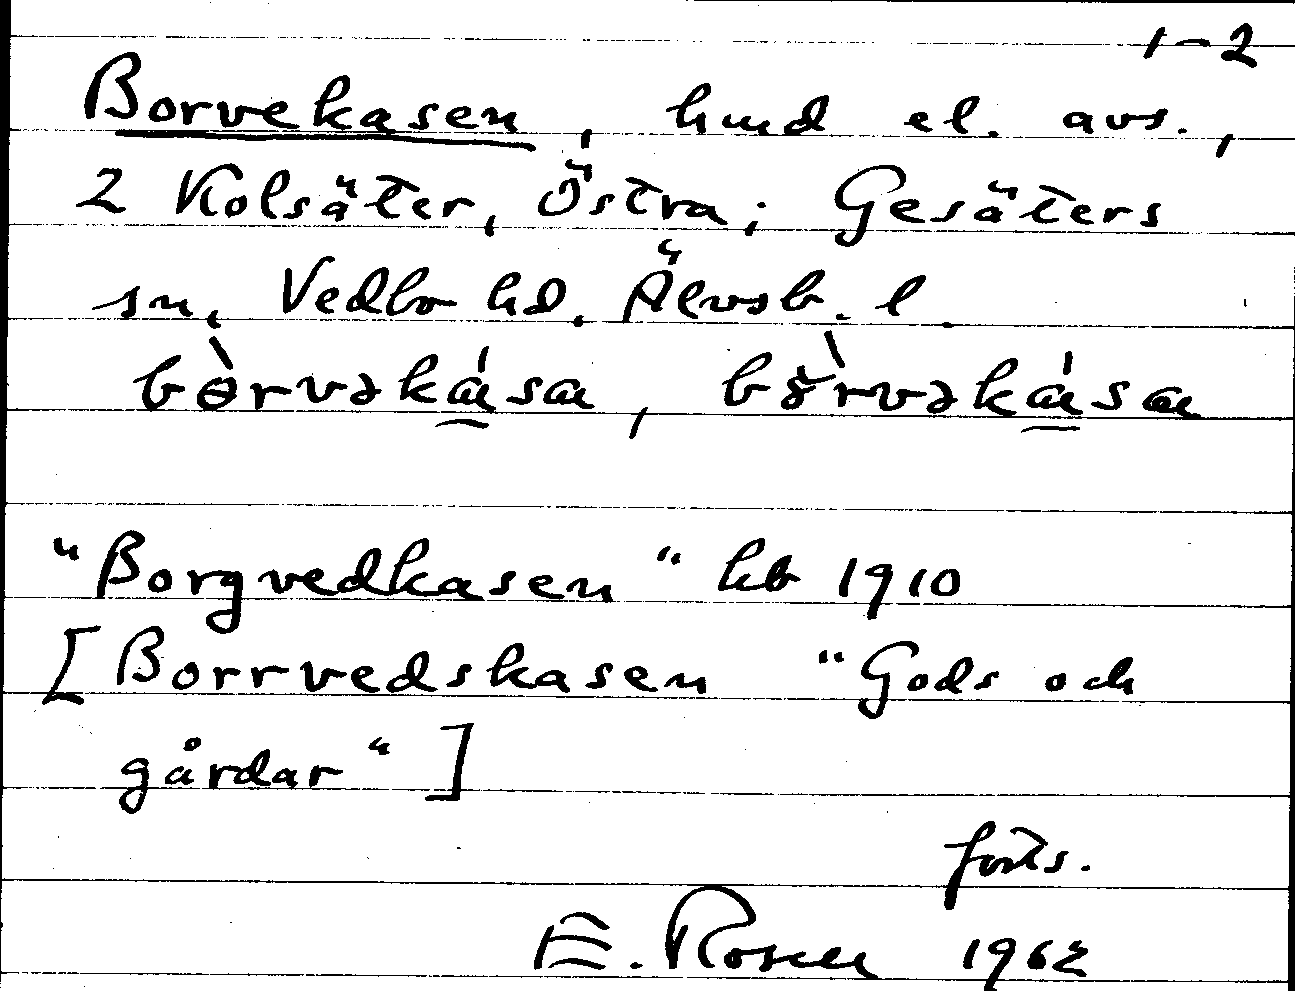 1-2
Borvekasen, hmd el. avs.,
2 Kolsäter, Östra; Gesäters
sn, Vedbo hd. Älvsb. l.
bòrvəkása, bòrvəkása
"Borgvedkasen" kb 1910
[Borrvedskasen "Gods och
gårdar"]
forts.
E. Rosell 1962